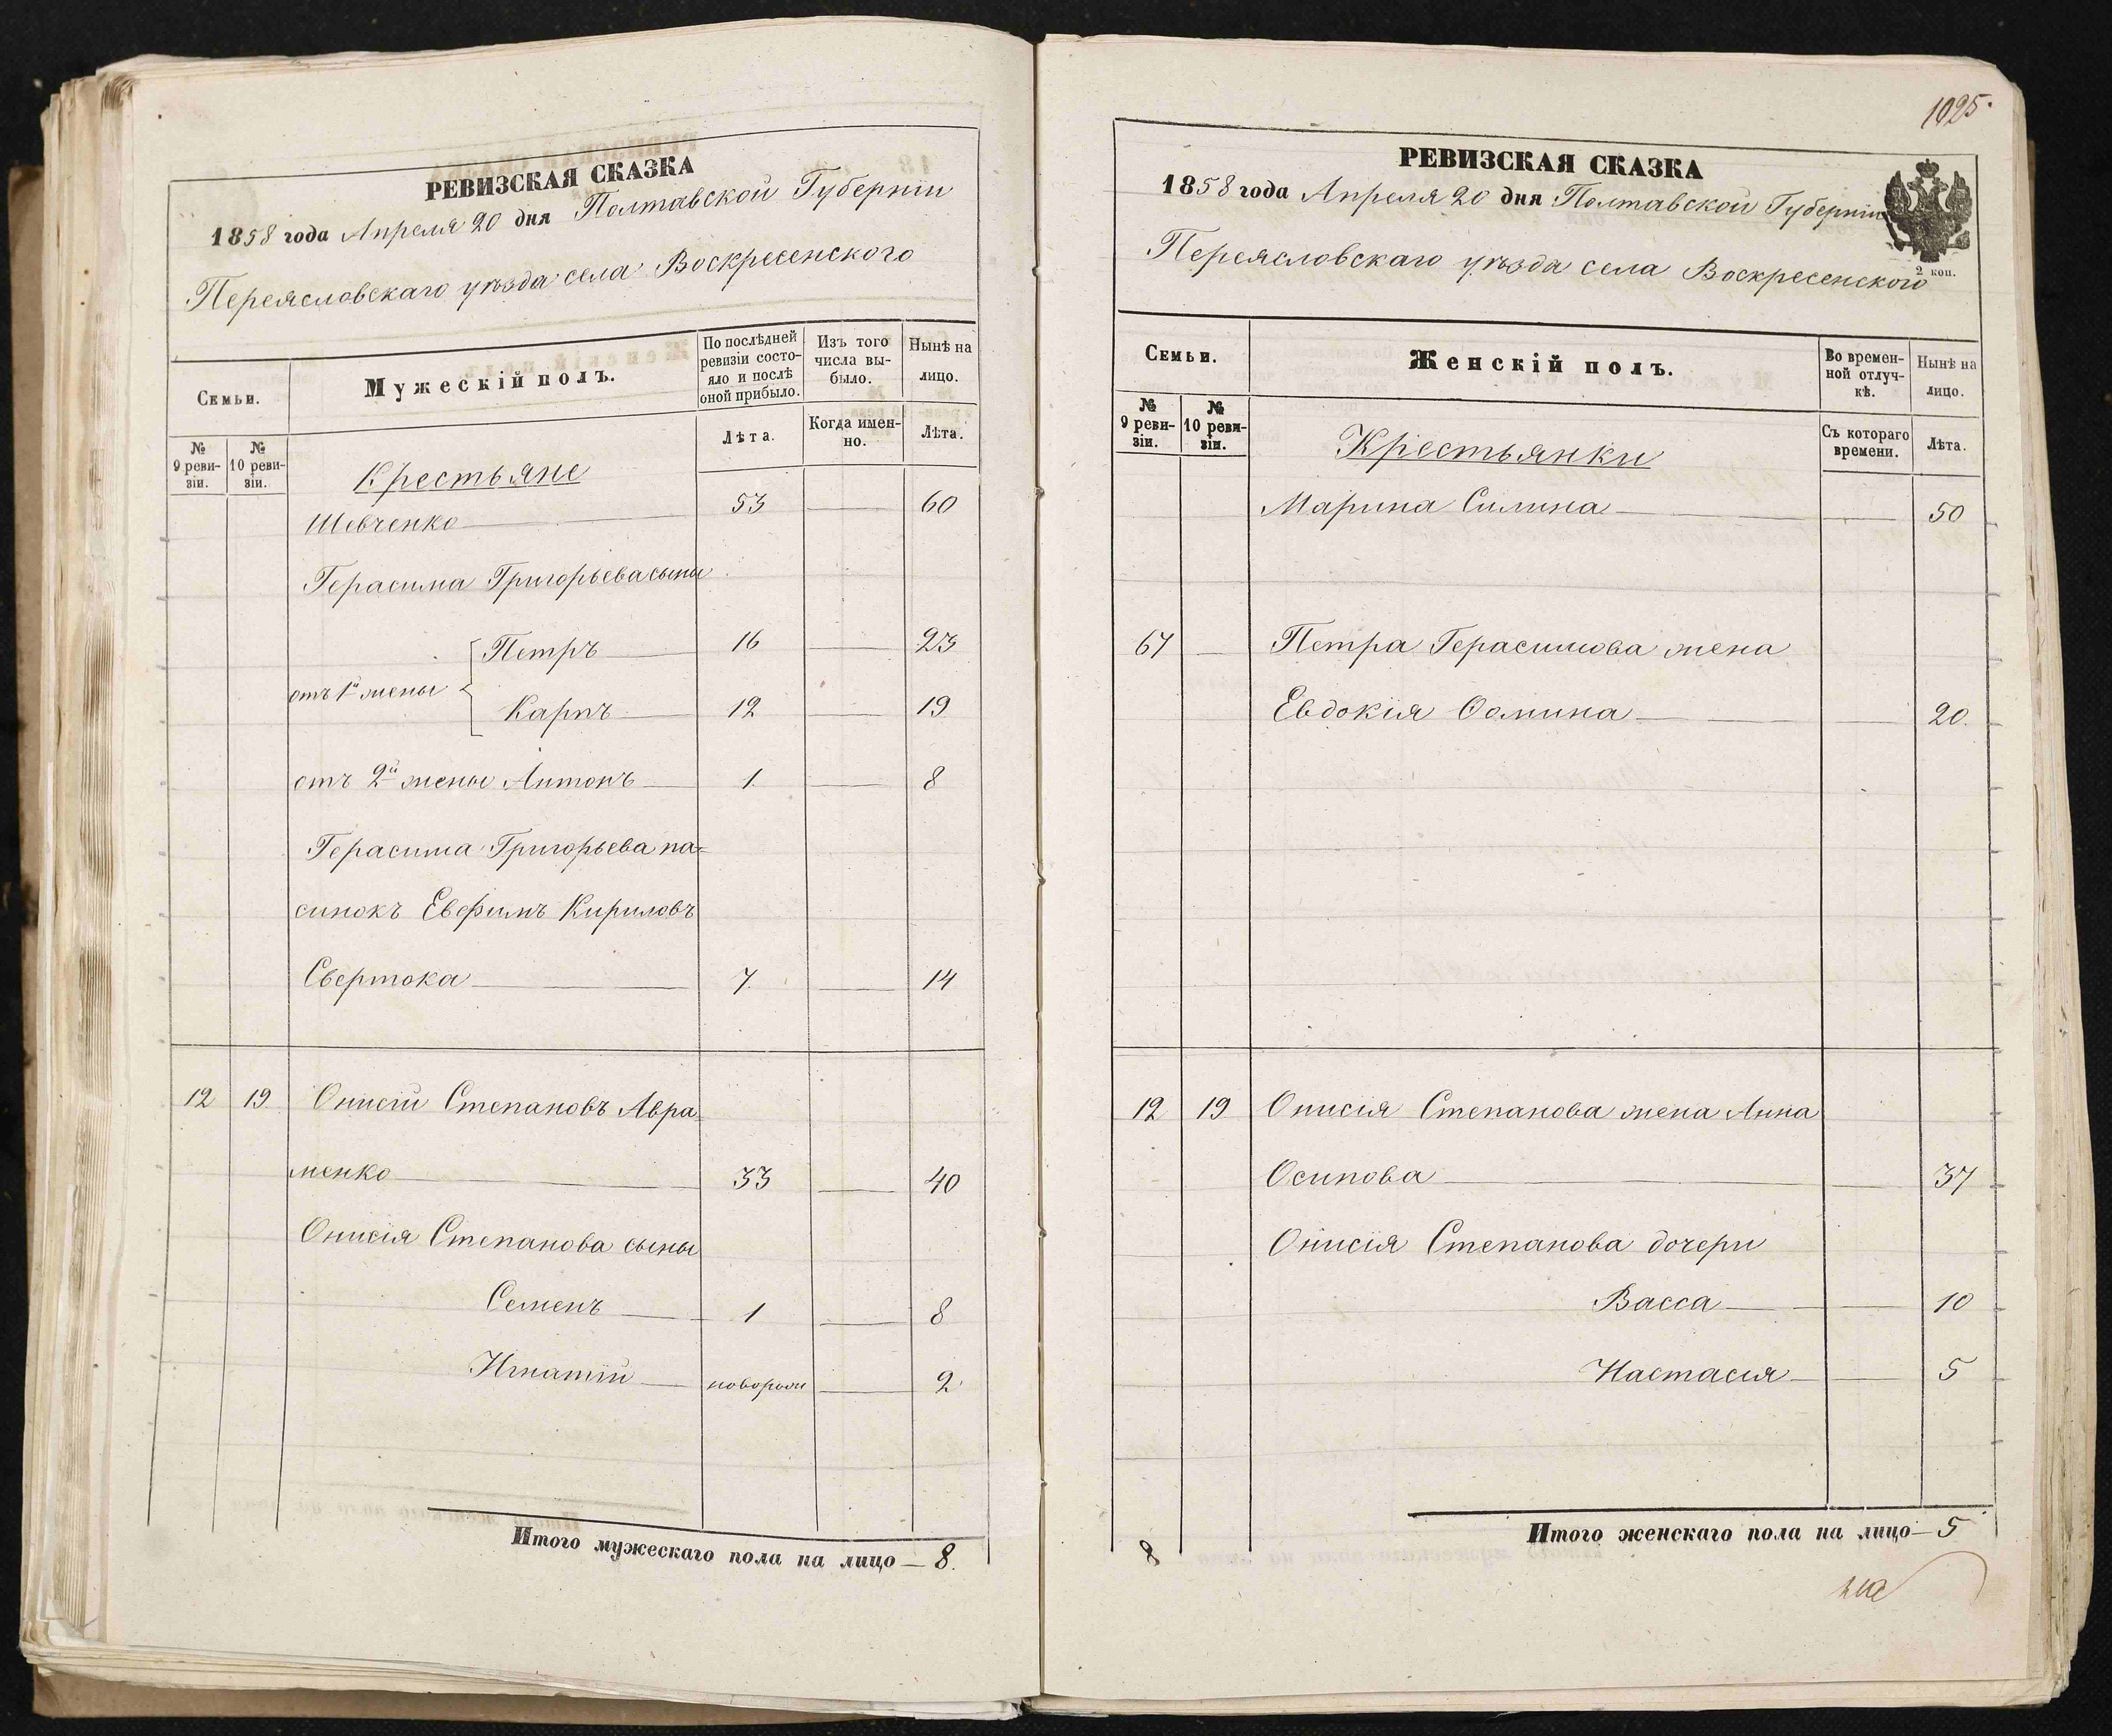 РЕВИЗСКАЯ СКАЗКА
1858 года Апреля 20 дня Полтавской Губерніи
Переясловскаго уѣзда села Воскресенского
Семьи.
Мужескій полъ.
По послѣдней ревизіи состояло и послѣ оной прибыло.
Изъ того числа выбыло.
Нынѣ на лицо.
№ 9 ревизіи.
№ 10 ревизіи.
Крестьяне
Лѣта.
Когда именно.
Лѣта.
Шевченко 53 60
Герасима Григорьева сыны
отъ 1й жены
Петръ 16 23
Карпъ 12 19
отъ 2й жены Антонъ 1 8
Герасима Григорьева па=
синокъ Евфимъ Кириловъ
Свертока 7 14
12 19 Онисій Степановъ Авра=
менко 33 40
Онисія Степанова сыны
Семенъ 1 8
Игнатій новорож 2
Итого мужескаго пола на лицо — 8.
1025.
РЕВИЗСКАЯ СКАЗКА
1858 года Апреля 20 дня Полтавской Губерніи
Переясловскаго уѣзда села Воскресенского
2 коп.
Семьи.
Женскій полъ.
Во временной отлучкѣ.
Нынѣ на лицо.
№ 9 ревизіи.
№ 10 ревизіи.
Крестьянки
Съ котораго времени.
Лѣта.
Марина Силина 50
67 Петра Герасимова жена
Евдокія Ѳомина 20.
12 19 Онисія Степанова жена Анна
Осипова 37
Онисія Степанова дочери
Васса 10
Настасія 5
Итого женскаго пола на лицо — 5
8